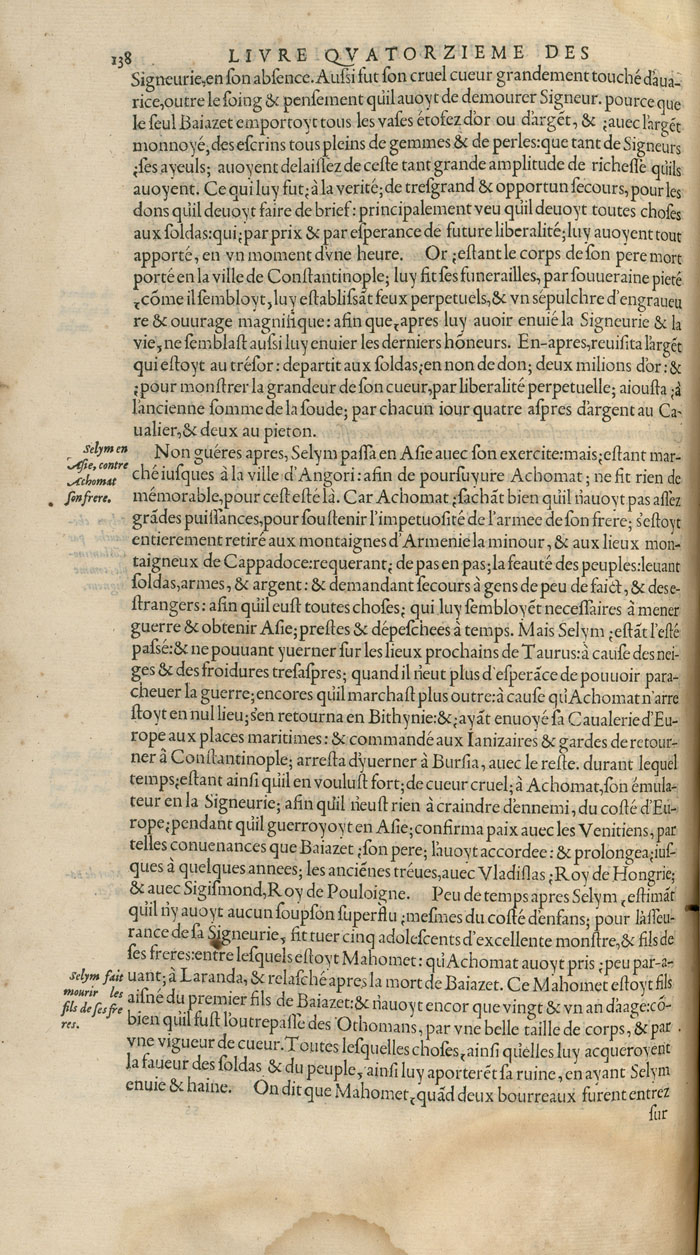 138 LIVRE QVATORZIEME DES
Signeurie,en ſon abſence. Auſsi fut ſon cruel cueur grandement touché d'aua-
rice,outre le ſoing & penſement qu'il auoyt de demourer Signeur. pource que
le ſeul Baiazet emportoyt tous les vaſes étofez d'or ou d'argẽt, & ;auec l'argẽt
monnoyé,des eſcrins tous pleins de gemmes & de perles:que tant de Signeurs
;ſes ayeuls; auoyent delaiſſez de ceſte tant grande amplitude de richeſſe qu'ils
auoyent. Ce qui luy fut;à la verité;de treſgrand & opportun ſecours,pour les
dons qu'il deuoyt faire de brief: principalement veu qu'il deuoyt toutes choſes
aux ſoldas:qui;par prix & par eſperance de future liberalité;luy auoyent tout
apporté, en vn moment d'vne heure. Or ;eſtant le corps de ſon pere mort
porté en la ville de Conſtantinople; luy fit ſes funerailles, par ſouueraine pieté
;cõme il ſembloyt, luy eſtabliſsãt feux perpetuels,& vn sépulchre d'engraueu
re & ouurage magnifique: afin que;apres luy auoir enuié la Signeurie & la
vie; ne ſemblaſt auſsi luy enuier les derniers hõneurs. En-apres,reuiſita l'argẽt
qui eſtoyt au tréſor: departit aux ſoldas;en non de don; deux milions d'or: &
;pour monſtrer la grandeur de ſon cueur,par liberalité perpetuelle; aiouſta ;à
l'ancienne ſomme de la ſoude; par chacun iour quatre aſpres d'argent au Ca-
ualier,& deux au pieton.
Selym en
Aſie, contre
Achomat
ſon frere.
Non guéres apres, Selym paſſa en Aſie auec ſon exercite:mais;eſtant mar-
ché iuſques à la ville d'Angori: afin de pourſuyure Achomat; ne fit rien de
mémorable,pour ceſt eſté là. Car Achomat ;ſachãt bien qu'il n'auoyt pas aſſez
grãdes puiſſances,pour ſouſtenir l'impetuoſité de l'armee de ſon frere; s'eſtoyt
entierement retiré aux montaignes d'Armenie la minour, & aux lieux mon-
taigneux de Cappadoce:requerant; de pas en pas;la feauté des peuples:leuant
ſoldas,armes, & argent: & demandant ſecours à gens de peu de faict, & d'eſe-
ſtrangers: afin qu'il euſt toutes choſes; qui luy ſembloyẽt neceſſaires à mener
guerre & obtenir Aſie; preſtes & dépeſchees à temps. Mais Selym ;eſtãt l'eſté
paſſé:& ne pouuant yuerner ſur les lieux prochains de Taurus:à cauſe des nei-
ges & des froidures treſaſpres; quand il n'eut plus d'eſperãce de pouuoir para-
cheuer la guerre;encores qu'il marchaſt plus outre:à cauſe qu'Achomat n'arre
ſtoyt en nul lieu;s'en retourna en Bithynie:&;ayãt enuoyé ſa Caualerie d'Eu-
rope aux places maritimes: & commandé aux Ianizaires & gardes de retour-
ner à Conſtantinople; arreſta d'yuerner à Burſia, auec le reſte. durant lequel
temps;eſtant ainſi qu'il en vouluſt fort;de cueur cruel; à Achomat,ſon émula-
teur en la Signeurie; afin qu'il n'euſt rien à craindre d'ennemi, du coſté d'Eu-
rope;pendant qu'il guerroyoyt en Aſie;confirma paix auec les Venitiens, par
telles conuenances que Baiazet ;ſon pere; l'auoyt accordee: & prolongea;iuſ-
ques à quelques annees; les anciẽnes tréues,auec Vladiſlas ;Roy de Hongrie;
& auec Sigiſmond,Roy de Pouloigne. Peu de temps apres Selym ;eſtimãt
qu'il n'y auoyt aucun ſoupſon ſuperflu ;meſmes du coſté d'enfans; pour l'aſſeu-
rance de ſa Signeurie, fit tuer cinq adoleſcents d'excellente monſtre,& fils de
ſes freres:entre leſquels eſtoyt Mahomet: qu'Achomat auoyt pris ;peu par-a-
Selym fait
mourir les
fils de ſes fre
res.
uant; à Laranda, & relaſché apres la mort de Baiazet. Ce Mahomet eſtoyt fils
aiſné du premier fils de Baiazet:& n'auoyt encor que vingt & vn an d'aage:cõ-
bien qu'il fuſt l'outrepaſſe des Othomans, par vne belle taille de corps, & par
vne vigueur de cueur. Toutes leſquelles choſes;ainſi qu'elles luy acqueroyent
la faueur des ſoldas & du peuple, ainſi luy aporterẽt ſa ruine, en ayant Selym
enuie & haine. On dit que Mahomet;quãd deux bourreaux furent entrez
ſur